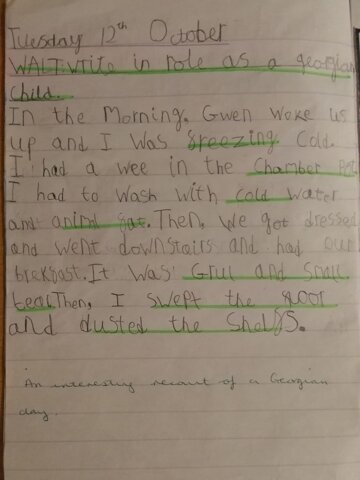 Tuesday 12th October
WALT: write in role as a georgian
child.
In the Morning. Gwen woke us
up and I was freezing cold.
I had a wee in the Chamber Pot.
I had to wash with cold water
and anima fat. Then, we got dressed
and went downstairs and had our
brekbast. It was Grul and small
teat Then, I swept the floor
and dusted the Shelfs.
An interesting recount of a Georgian
day.